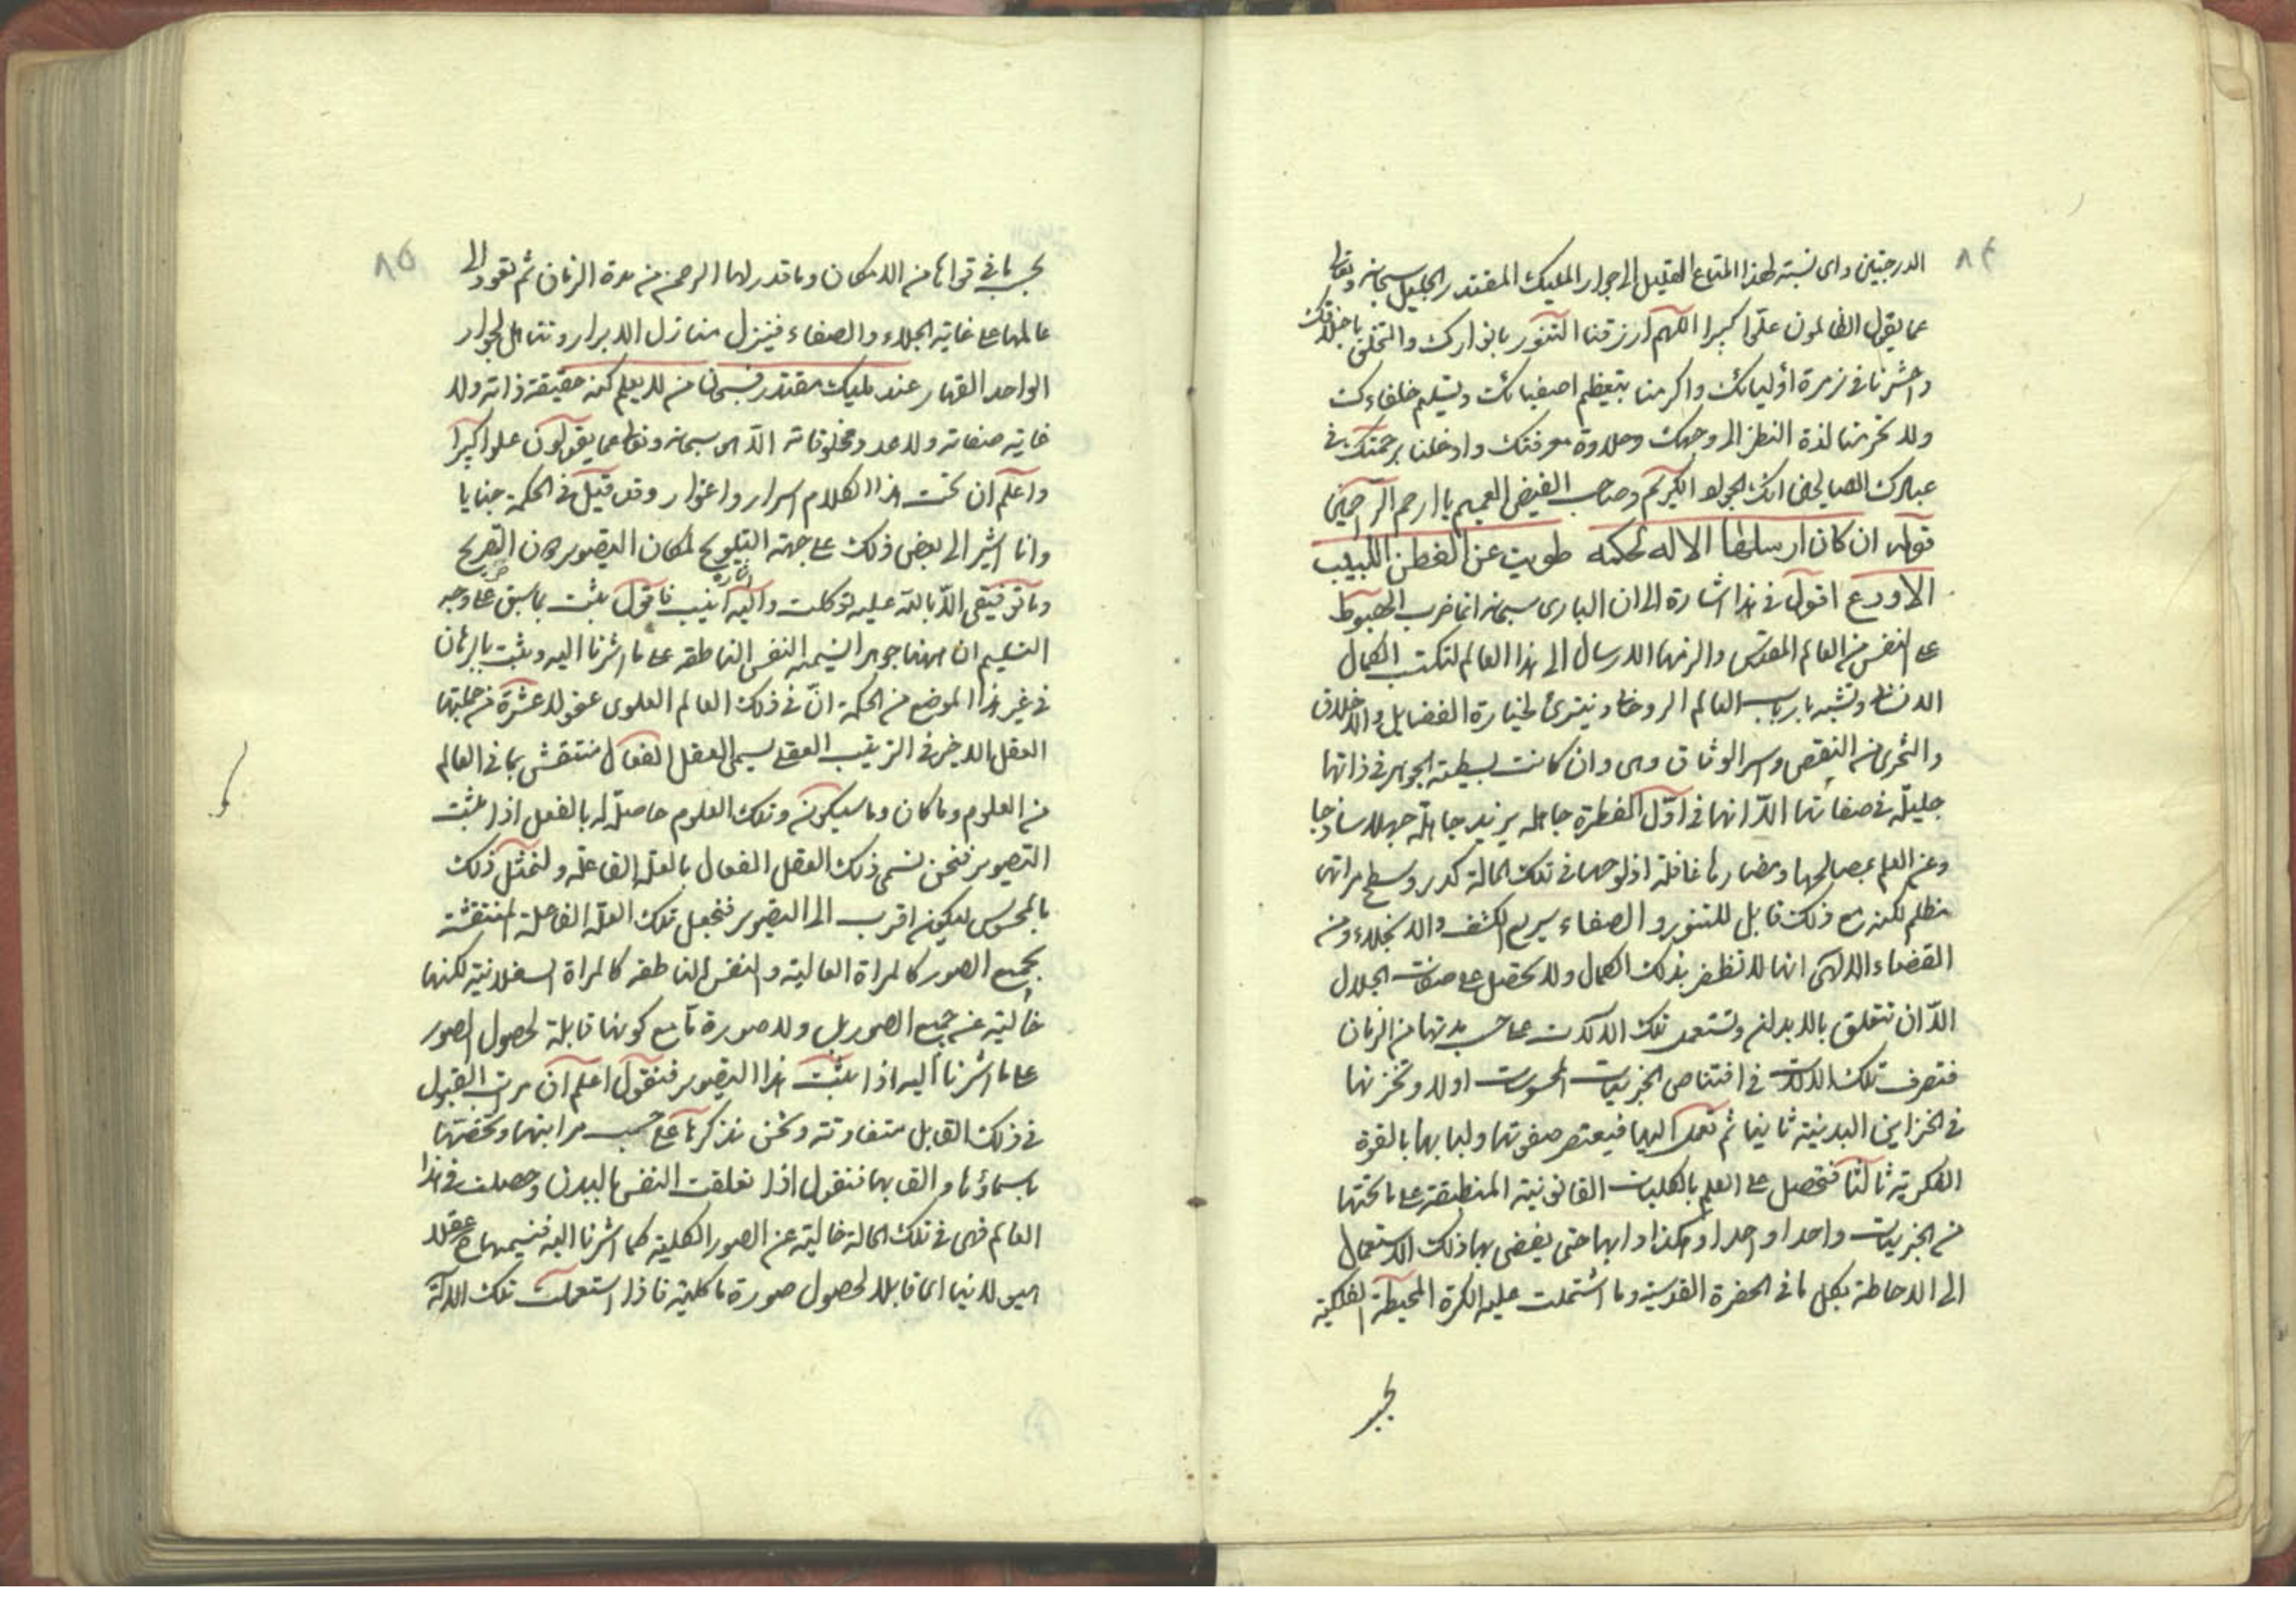 ٨٤
الدرجتين واى نسبة لهذا المتاع القليل الى جوار المليك المقتدر الجليل سبحانه وتعالى
عما يقول الظالمون علوّا كبيرا اللهم ارزقنا التنور بانوارك والتخلق باخلاقك
واحشرنا فى زمرة أوليائك واكرمنا بتعظيم اصفيائك وتسليم خلفاءك
ولا تحرمنا لذة النظر الى وجهك وحلاوة معرفتك وادخلنا برحمتك فى
عبادك الصالحين انك الجواد الكريم وصاحب الفيض العميم يا ارحم الراحمين
قوله ان كان ارسلها الاله لحكمه طويت عن الفطن اللبيب
الاورع اقول فى هذا اشارة الى ان البارى سبحانه انما ضرب الهبوط
على النفس من العالم المقدس والزمها الارسال الى هذا العالم لتكتسب الكمال
الانسانى وتشبه بارباب العالم الروحانى بحيازة الفضايل والاخلاق
والتحرى من النقص واسر الوثاق وهى وان كانت بسيطة الجوهر فى ذاتها
جليلة فى صفاتها الّا انها فى اوّل الفطرة جاهله يزيد جاهلة جهلا ساذجا
وعن العلم بمصالحها ومضارها غافلة اذ لوحها فى تلك الحالة كدر وسطح مراتها
مظلم لكنه مع ذلك قابل للتنور والصفاء سريع الكشف والانجلاء ومن
القضاء الالهى انها لا تظفر بذلك الكمال ولا تحصل على صفات الجلال
الّا ان تتعلق بالابدان وتستعمل تلك الالات على حسب مدتها من الزمان
فتصرف تلك الالات فى اقتناص الجزييات المحسوسات اولا وتخزنها
فى الخزاين البدنية ثانيا ثم تعمد اليها فيعتصر صفوتها ولبابها بالقوة
الفكرية ثالثا فتحصل على العلم بالكليات القانونية المنطبقة على ما تحتها
من الجزييات واحدا واحدا وهكذا دابها حتى يفضى بها ذلك الاستعمال
الى الاحاطة بكل ما فى الحضرة القدسية وما اشتملت عليه الكرة المحيطة الفلكية
٨٥
بحسب ما فى قواها من الامكان وما قدر لها الرحمن من مدة الزمان ثم تعود الى
عالمها على غاية الجلاء والصفاء فينزل منازل الابرار وتتاهل لجوار
الواحد القهار عند مليك مقتدر فسبحان من لا يعلم كنه حقيقة ذاته ولا
غاية صفاته ولا عدد مخلوقاته الّا هو سبحانه وتعالى عما يقولون علوا كبيرا
واعلم ان تحت هذا الكلام اسرار واغوار وقد قيل فى الحكمة خبايا
وانا اشير الى بعض ذلك على جهة التلويح لمكان التصوير مكان التصريح
وما توفيقى الّا بالله عليه توكلت واليه انيب فاقول ثبت بما سبق على وجه
التسليم ان ههنا جوهرا نسميه النفس الناطقه على ما اشرنا اليه وثبت بالبرهان
فى غير هذا الموضع من الحكمة انّ فى ذلك العالم العلوى عقولا عشرة من جملتها
العقل الاخير فى الترتيب العقلى يسمى العقل الفعال منتقش بما فى العالم
من العلوم وما كان وما سيكون وتلك العلوم حاصلة له بالفعل اذا ثبت
التصوير فنحن نسمى ذلك العقل الفعال بالعلة الفاعلة ولنمثل ذلك
بالمحسوس ليكون اقرب الى التصوير فنجعل تلك العلة الفاعلة المنتقشة
بجميع الصور كالمراة العالية والنفس الناطقه كالمراة السفلانية لكنها
خالية عن جميع الصور بل ولا صورة ما مع كونها قابلة لحصول الصور
على ما اشرنا اليه اذا ثبت هذا التصوير فنقول اعلم ان مراتب القبول
فى ذلك القابل متفاوتة ونحن نذكرها على حسب مراتبها ونخصها
باسماؤها والقابها فنقول اذا تعلقت النفس بالبدن وحصلت فى هذا
العالم فهى فى تلك الحالة خالية عن الصور الكلية كما اشرنا اليه فنسميها ح عقلا
هيولانيا اى قابلا لحصول صورة ما كلية فاذا استعملت تلك الالة